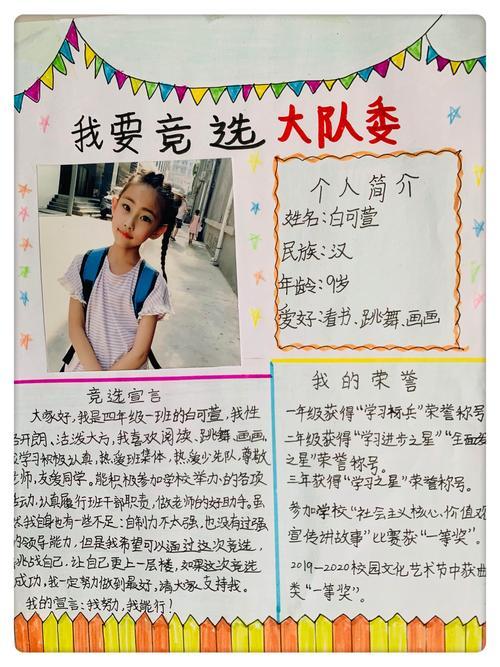 我要竞选大队委
个人简介
姓名:白可萱
民族:汉
年龄:9岁
爱好:看书、跳舞、画画
竞选宣言
大家好,我是四年级一班的白可萱,我性
开朗、活泼大方,我喜欢阅读、跳舞、画画,
学习积极认真,热爱班集体,热爱少先队,尊敬
师,友爱同学。能积极参加学校举办的各项
动,认真履行班干部职责,做老师的好助手。虽
我自身也有一些不足:自制力不太强,也没有过强
的领导能力,但是我希望可以通过这次竞选,
挑战自己,让自己更上一层楼,如果这次竞选
成功,我一定努力做到最好,请大家支持我。
我的宣言:我努力,我能行!
我的荣誉
一年级获得“学习标兵”荣誉称号
二年级获得“学习进步之星”“全面发
之星”荣誉称号。
三年获得“学习之星”荣誉称号。
参加学校“社会主义核心价值观
宣传讲故事”比赛获“一等奖”。
2019-2020校园文化艺术节中获曲
类“一等奖”。